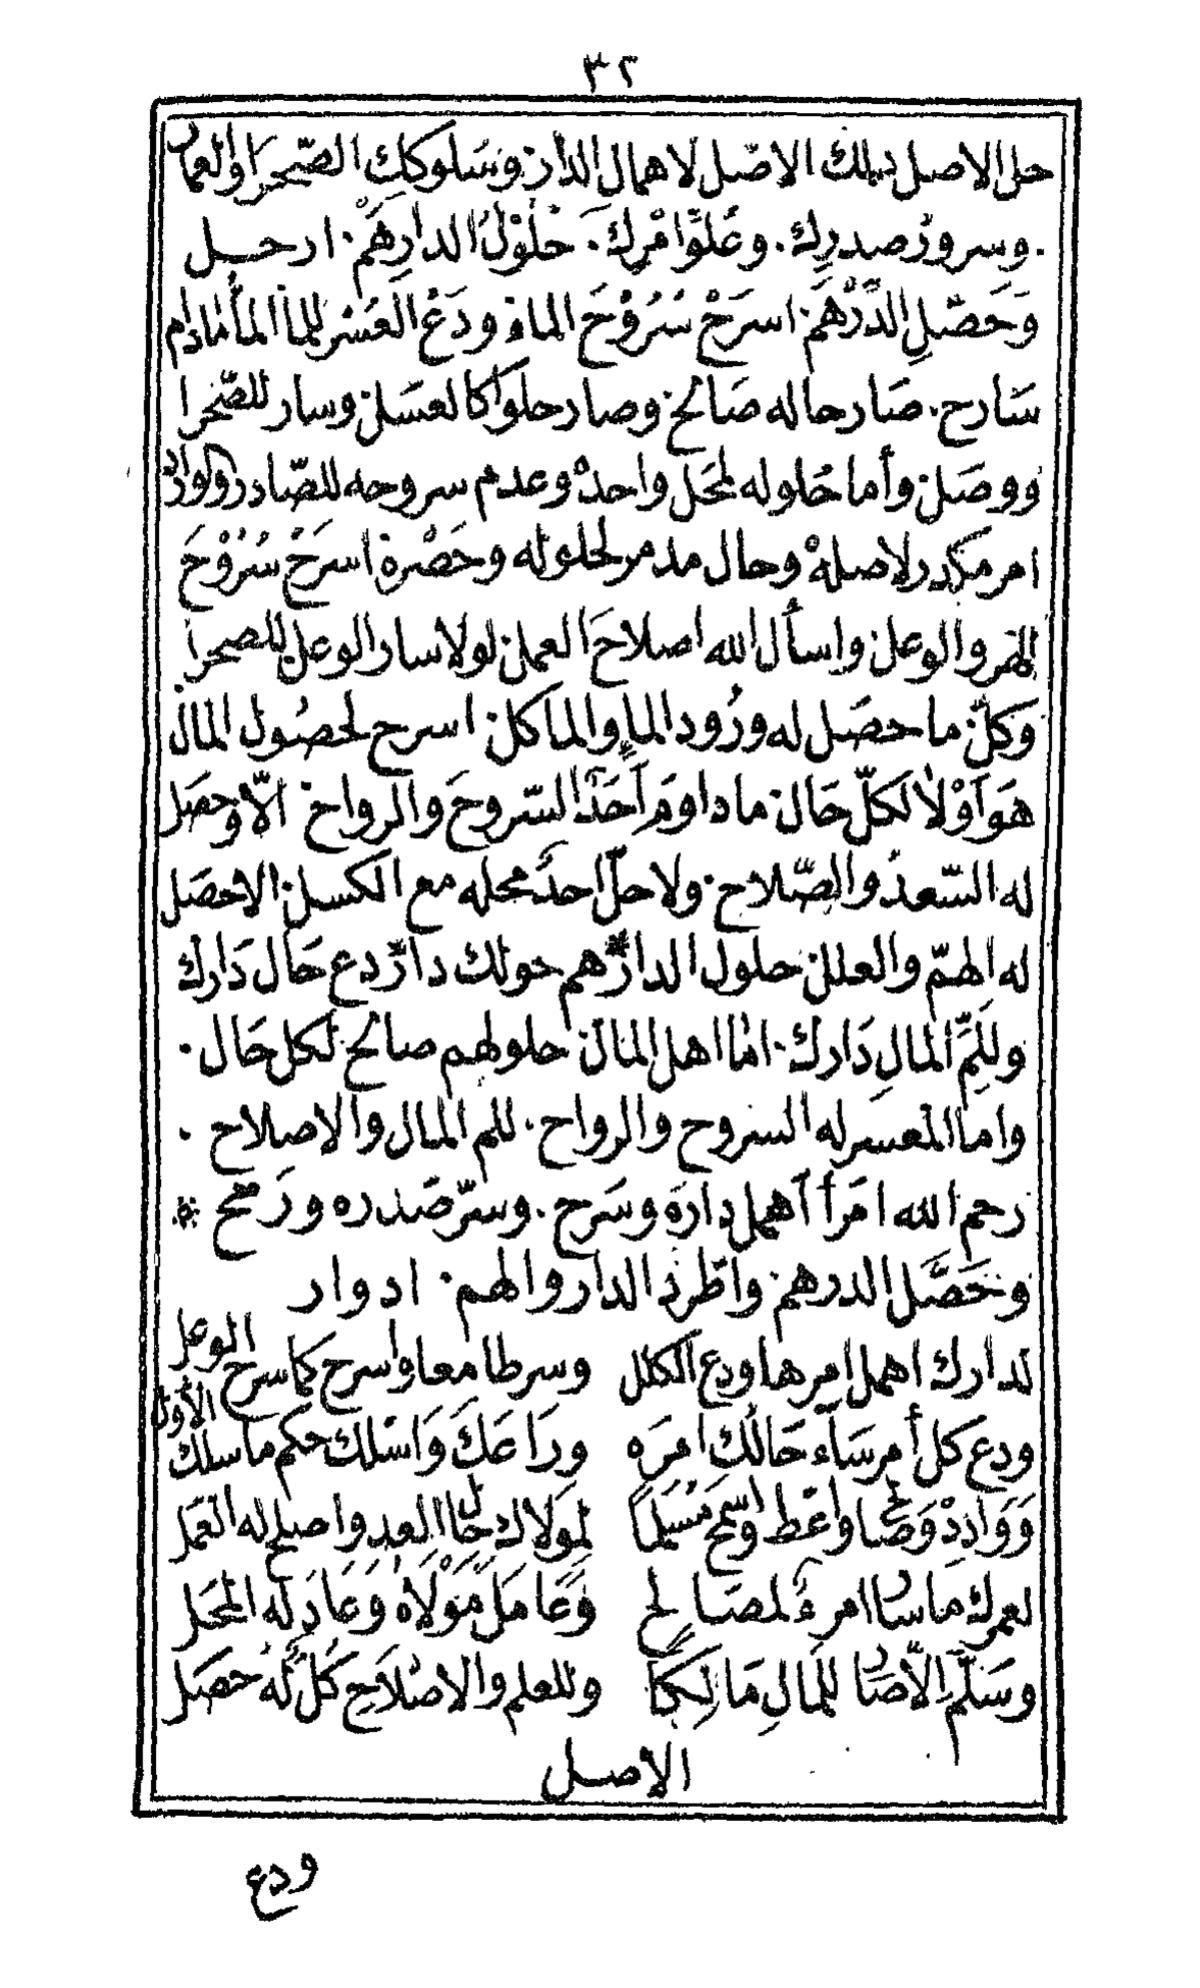 ٣٢
حل الاصل ديلك الاصل لاهمال الدار وسلوكك الصحرا والعمار
. وسرور صدرك . وعلو امرك . حلول الدار هم . ارحل
وحصل الدرهم . اسرح سروح الماء ودع العسر للما الماء مادام
سارح . صار حاله صالح . وصار حلوا كالعسل . وسار للصحرا
ووصل . وأما حلوله لمحل واحد وعدم سروحه للصادر والوارد
امر مكدر لاصله وحال مدمر لحلوله وحصره اسرح سروح
المهر والوعل واسأل الله اصلاح العمل لولا سار الوعل للصحرا
وكل ما حصل له ورود الما والماكل . اسرح لحصول المال
هو اولا لكل حال . ما داوم احد السروح والرواح . الا وحصل
له السعد والصلاح . ولا حل احد محله مع الكسل الا حصل
له الهم والعلل . حلول الدار هم حولك دار دع حال دارك
وللم المال دارك . اما اهل المال حلولهم صالح لكل حال .
واما المعسر له السروح والرواح . للم المال والاصلاح .
رحم الله امرأ اهمل داره وسرح . وسر صدره ورمح
وحصل الدرهم . واطرد الدار والهم . ادوار
لدارك اهمل امرها ودع الكلل وسر طامعا واسرح كما سرح الوعل الأول
ودع كل أمر ساء حالك امره وراعك واسلك حكم ما سلك
ووادد وصالح واعط واسمح مسلما لمولاك حال العد واصلح له العمل
لعمرك ما سار امرء لمصالح وعامل مولاه وعاد له المحل
وسلم الاصار للمال مالكا وللعلم والاصلاح كل له حصل
الاصل
ودع